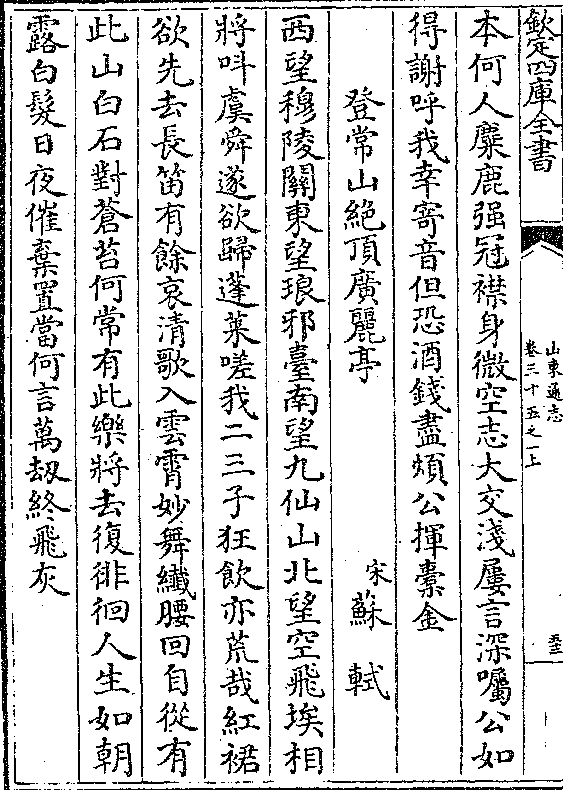 欽定四庫全書
山東通志
卷三十五之一上
本何人麋鹿强冠襟身微空志大交淺屢言深囑公如
得謝呼我幸寄音但恐酒錢盡煩公揮橐金
登常山絶頂廣麗亭
宋蘇軾
西望穆陵關東望琅邪臺南望九仙山北望空飛埃相
將叫虞舜遂欲歸蓬萊嗟我二三子狂飲亦荒哉紅裙
欲先去長笛有餘哀清歌入雲霄妙舞纖腰回自從有
此山白石對蒼苔何常有此樂將去復徘徊人生如朝
露白髮日夜催棄置當何言萬刼終飛灰